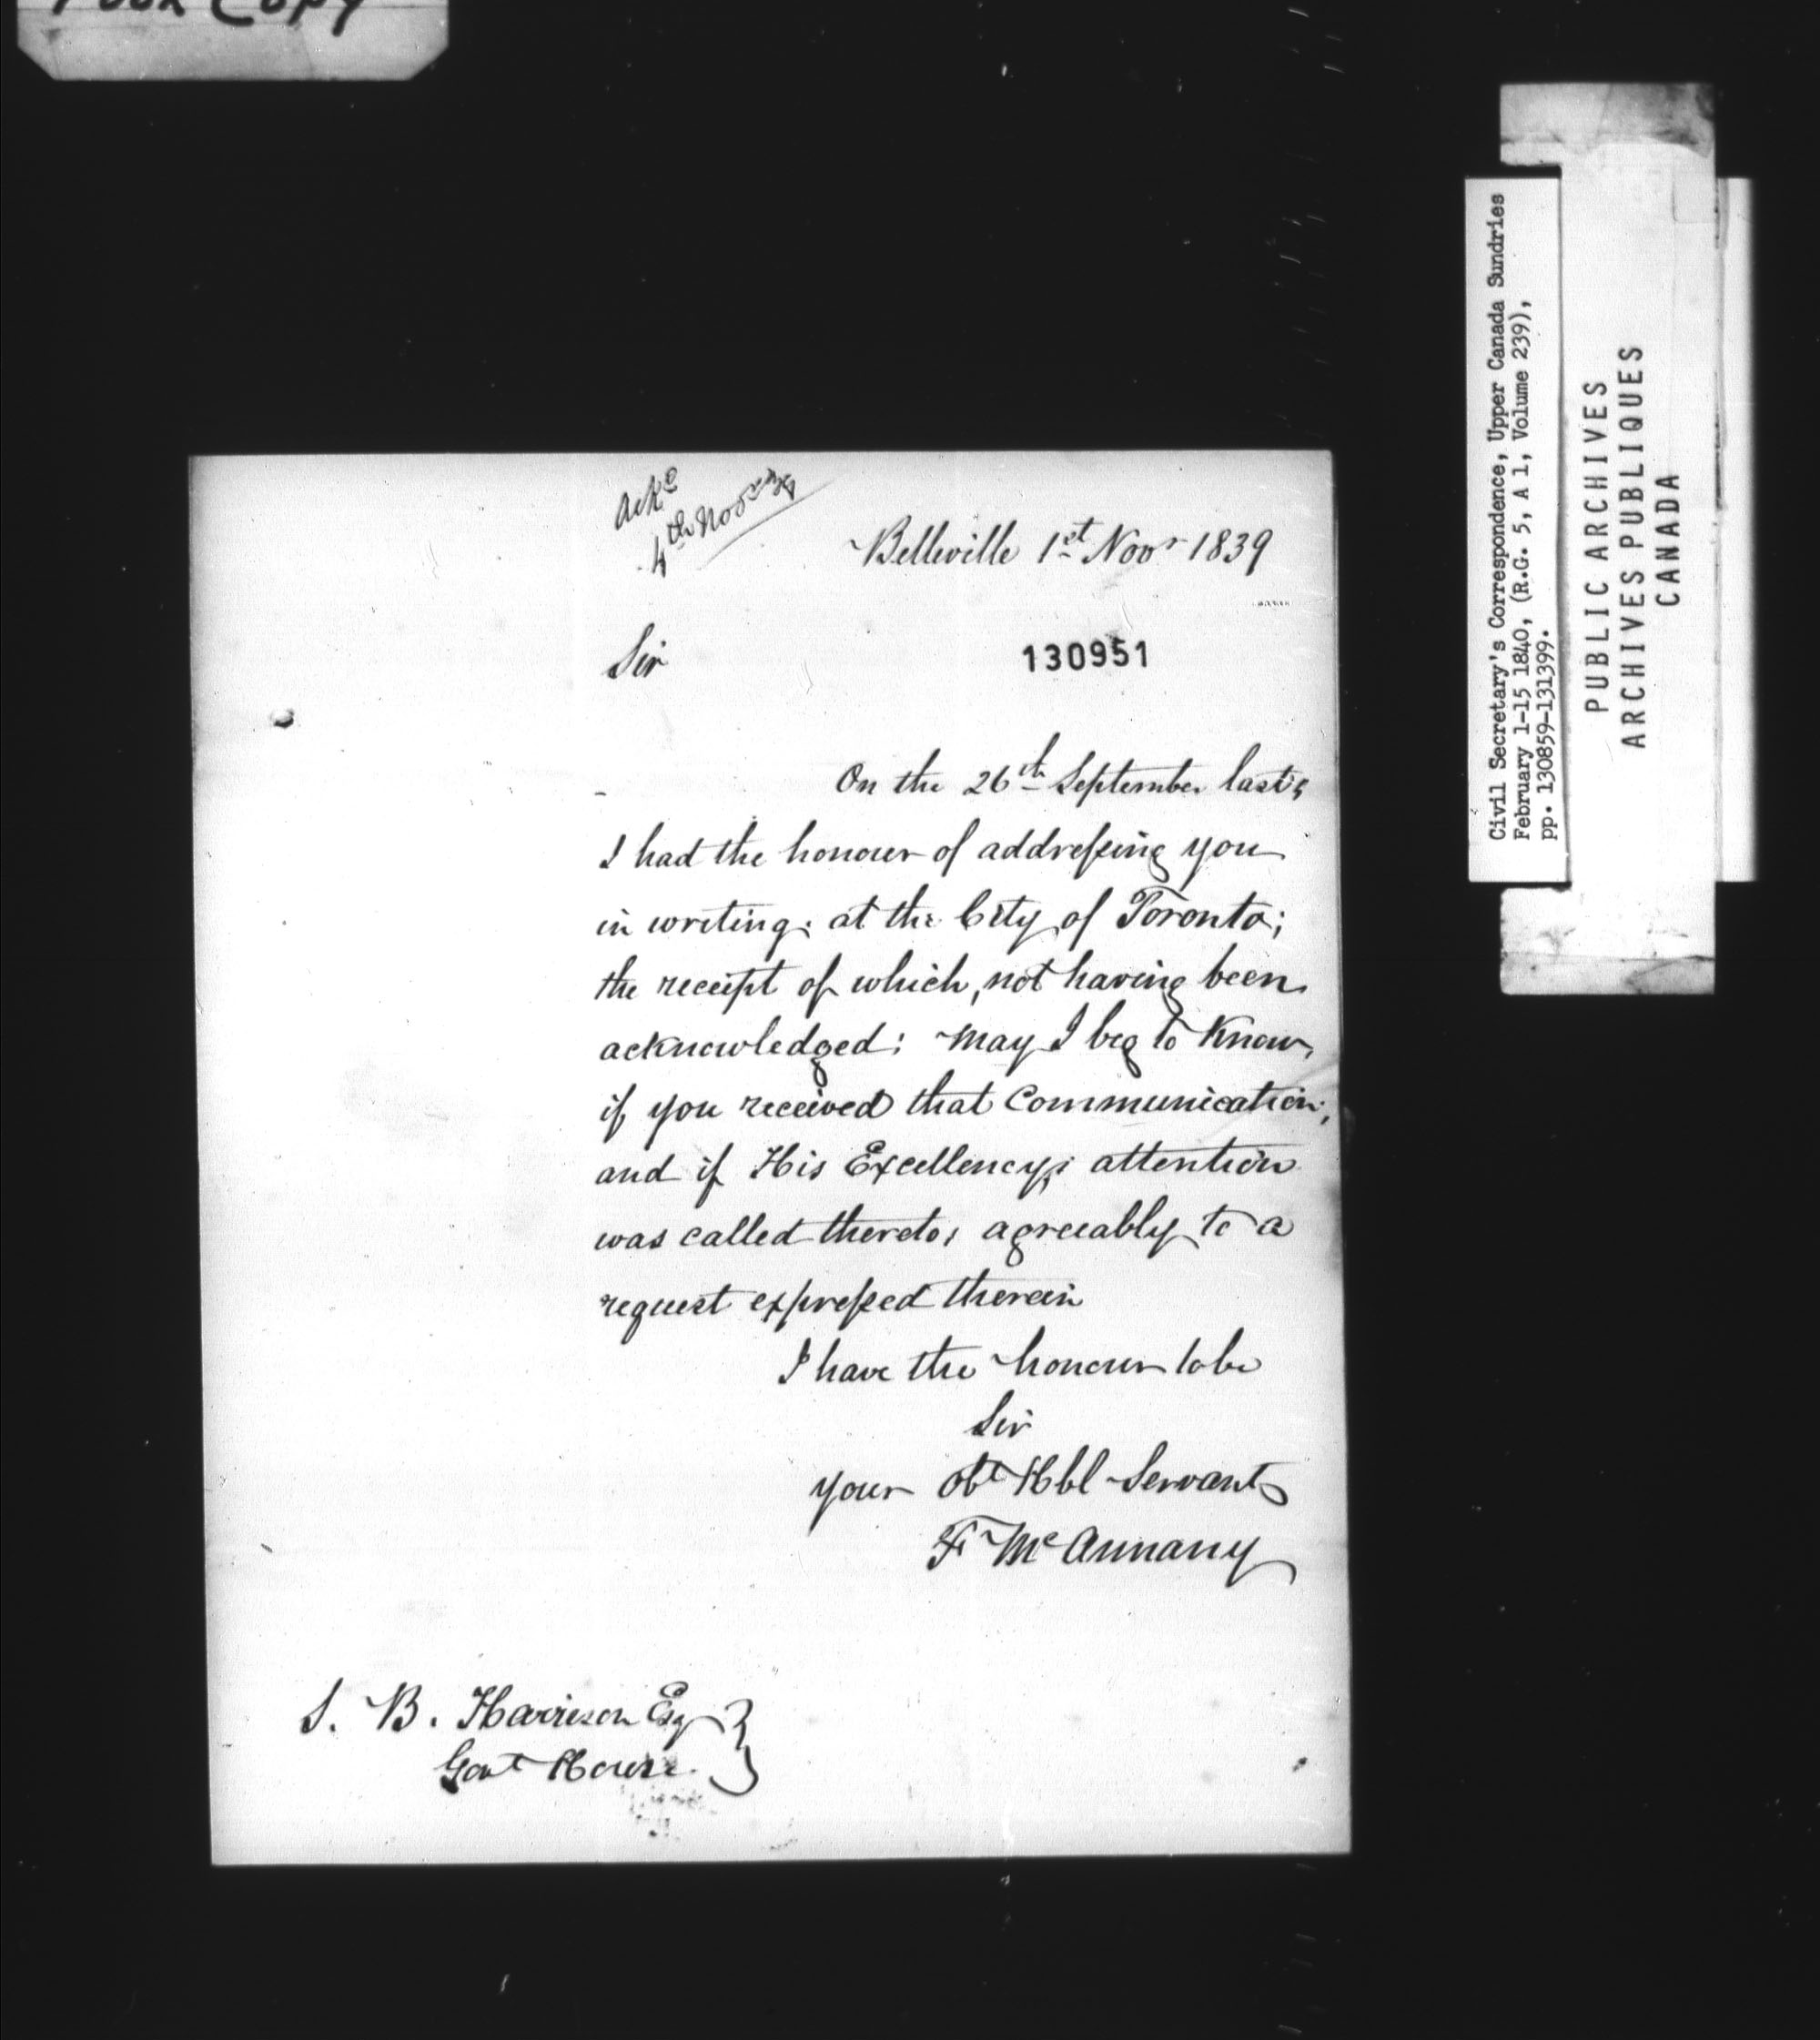 Poor Copy
Ackd
4th Novr 39
Belleville 1st Novr 1839
130951
Sir
On the 26th September last,
I had the honour of addressing you
in writing; at the City of Toronto;
the receipt of which, not having been
acknowledged; may I beg to Know,
if you received that Communication;
and if His Excellency's attention
was called thereto, agreeably to a
request expressed therein
I have the honour to be
Sir
your Obt Hbl Servant
F McAnnany
S. B. Harrison Esq
Govt House.
Civil Secretary's Correspondence, Upper Canada Sundries
February 1-15 1840, (R.G. 5, A 1, Volume 239),
pp. 130859-131399.
PUBLIC ARCHIVES
ARCHIVES PUBLIQUES
CANADA